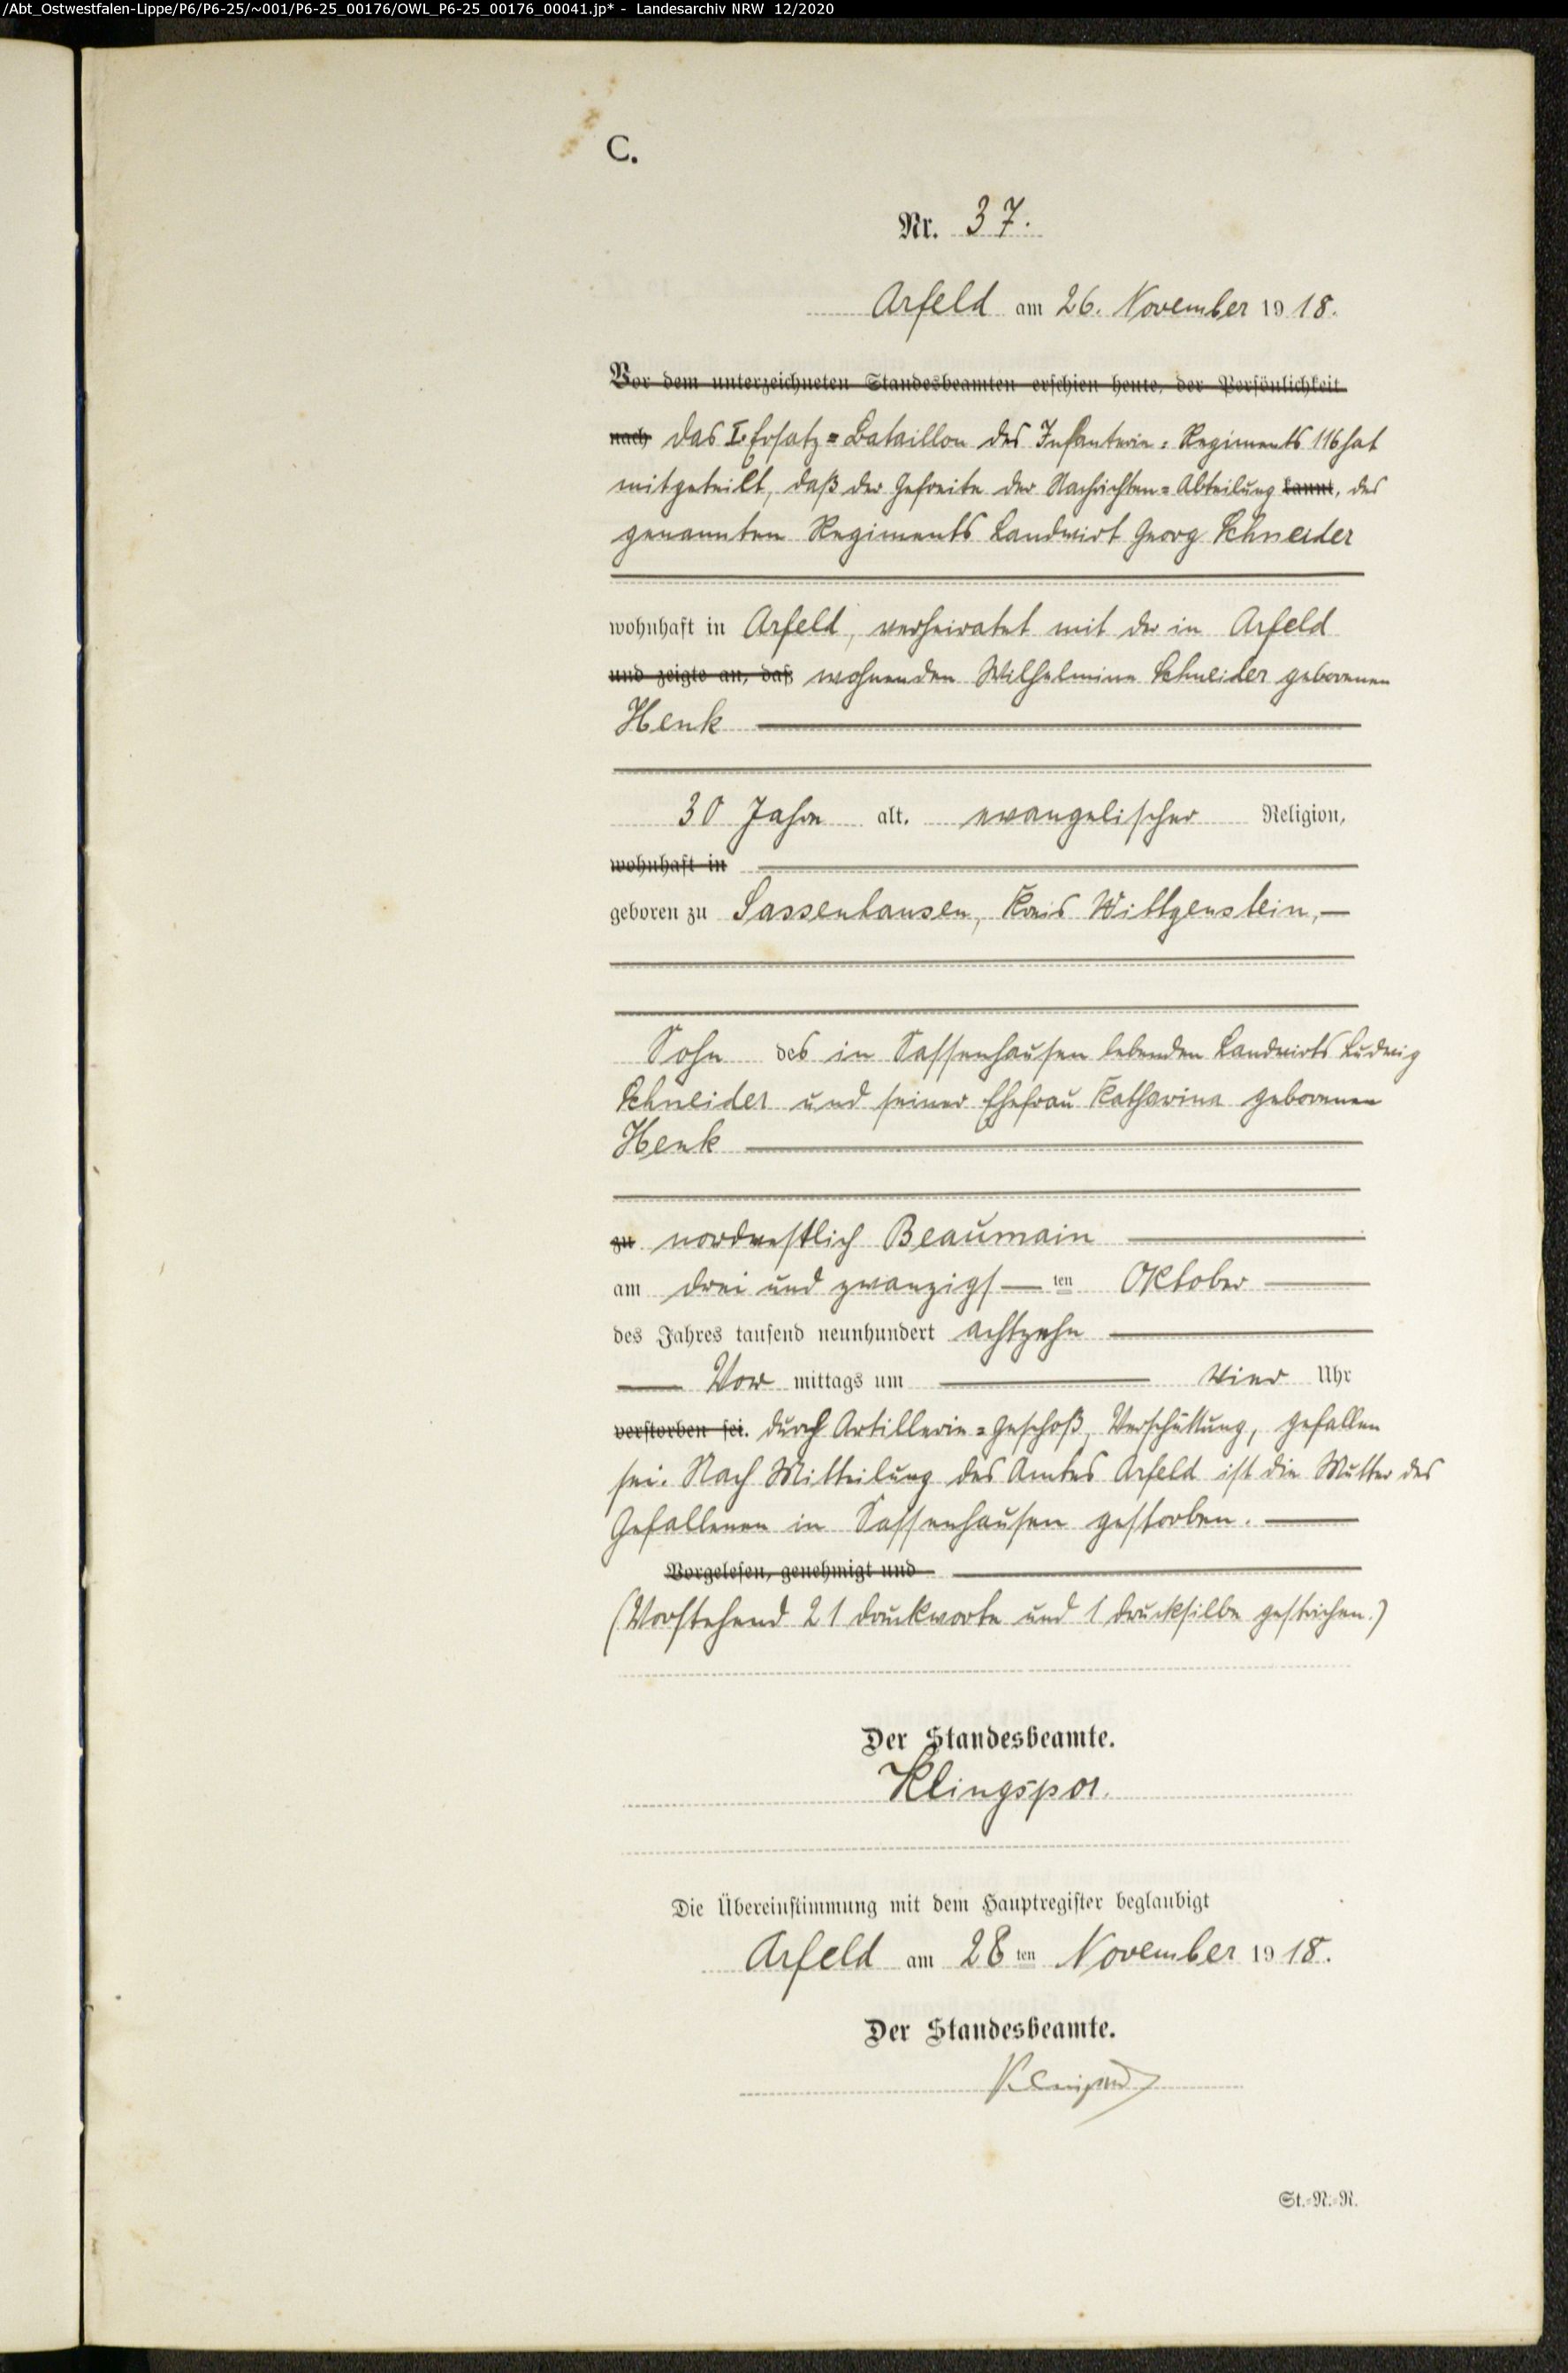 /Abt_Ostwestfalen-Lippe/P6/P6-25/~001/P6-25_00176/OWL_P6-25_00176_00041.jp* - Landesarchiv NRW 12/2020
C.
Nr. 37.
Arfeld am 26. November 1918.
Vor dem unterzeichneten Standesbeamten erschien heute, der Persönlichkeit
nach das I. Ersatz=Bataillon des Infanterie=Regiments 116 hat
mitgeteilt, daß der Gefreite der Nachrichten=Abteilung kannt, des
genannten Regiments Landwirt Georg Schneider
wohnhaft in Arfeld, verheiratet mit der in Arfeld
und zeigte an, daß wohnenden Wilhelmine Schneider geborenen
Henk
30 Jahre alt, evangelischer Religion,
wohnhaft in
geboren zu Sassenhausen, Kreis Wittgenstein,
Sohn des in Sassenhausen lebenden Landwirts Ludwig
Schneider und seiner Ehefrau Katharina geborenen
Henk
zu nordwestlich Beaumain
am drei und zwanzigs ten Oktober
des Jahres tausend neunhundert achtzehn
Vor mittags um vier Uhr
verstorben sei. durch Artillerie=Geschoß, Verschüttung, gefallen
sei. Nach Mitteilung des Amtes Arfeld ist die Mutter des
Gefallenen in Sassenhausen gestorben.
Vorgelesen, genehmigt und
(Vorstehend 21 Druckworte und 1 Drucksilbe gestrichen.)
Der Standesbeamte.
Klingspor.
Die Übereinstimmung mit dem Hauptregister beglaubigt
Arfeld am 28ten November 1918.
Der Standesbeamte.
Klingspor
St.=N.=R.